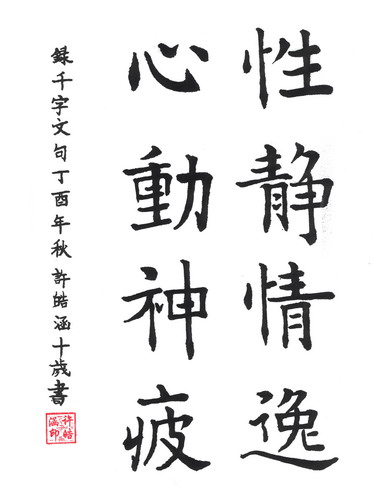 性靜情逸
心動神疲
録千字文句丁酉年秋許皓涵十歲書
許皓涵印